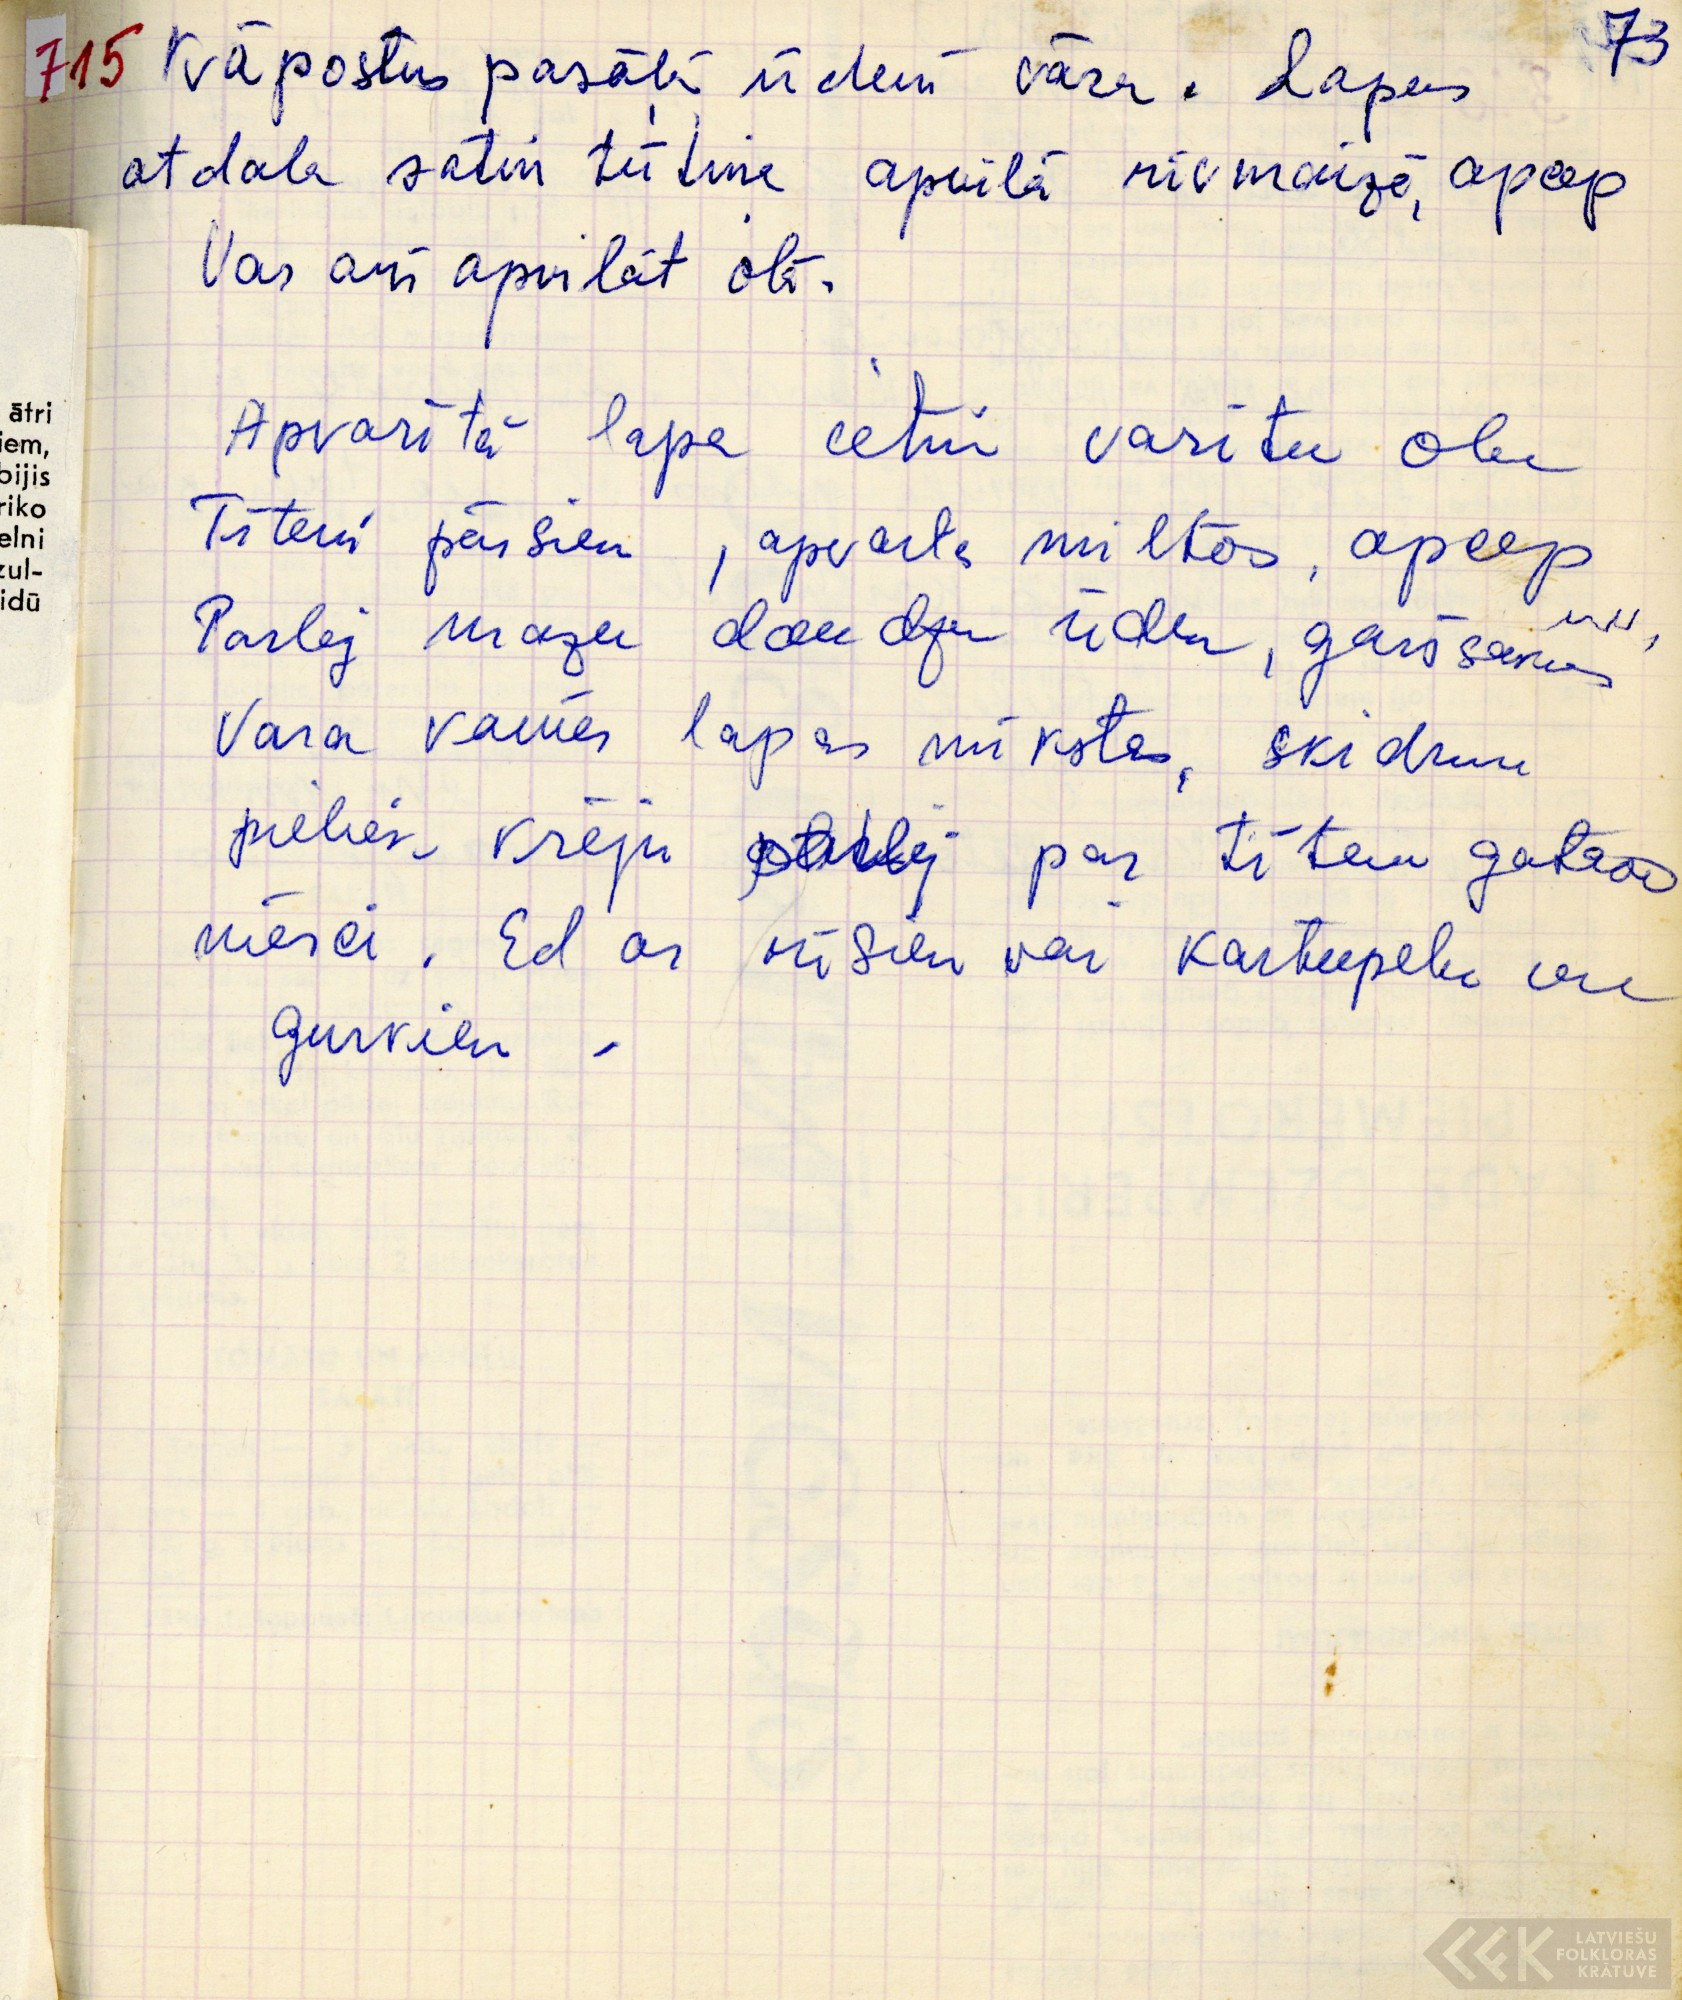 73
715 Kāpostus pasāļi ūdenī vāra. Lapas
atdala satin tūtiņa apviļā rīvmaizē, apcep
Var arī apviļāt olā.
Apvarītā lapa ietin varītu olu
Tīteni pārsien, apvarta miltos, apcep
Parlej mazu daudzu ūden, garšvas
Vara kamēr lapas mīkstas, skidrum
pieliek krēju par titeni gatavo
mērci. Ed ar rīsiem vai kartupeļu un
gurkien.
ātri
iem,
bijis
riko
elni
zul-
idū
LATVIEŠU
FOLKLORAS
KRĀTUVE